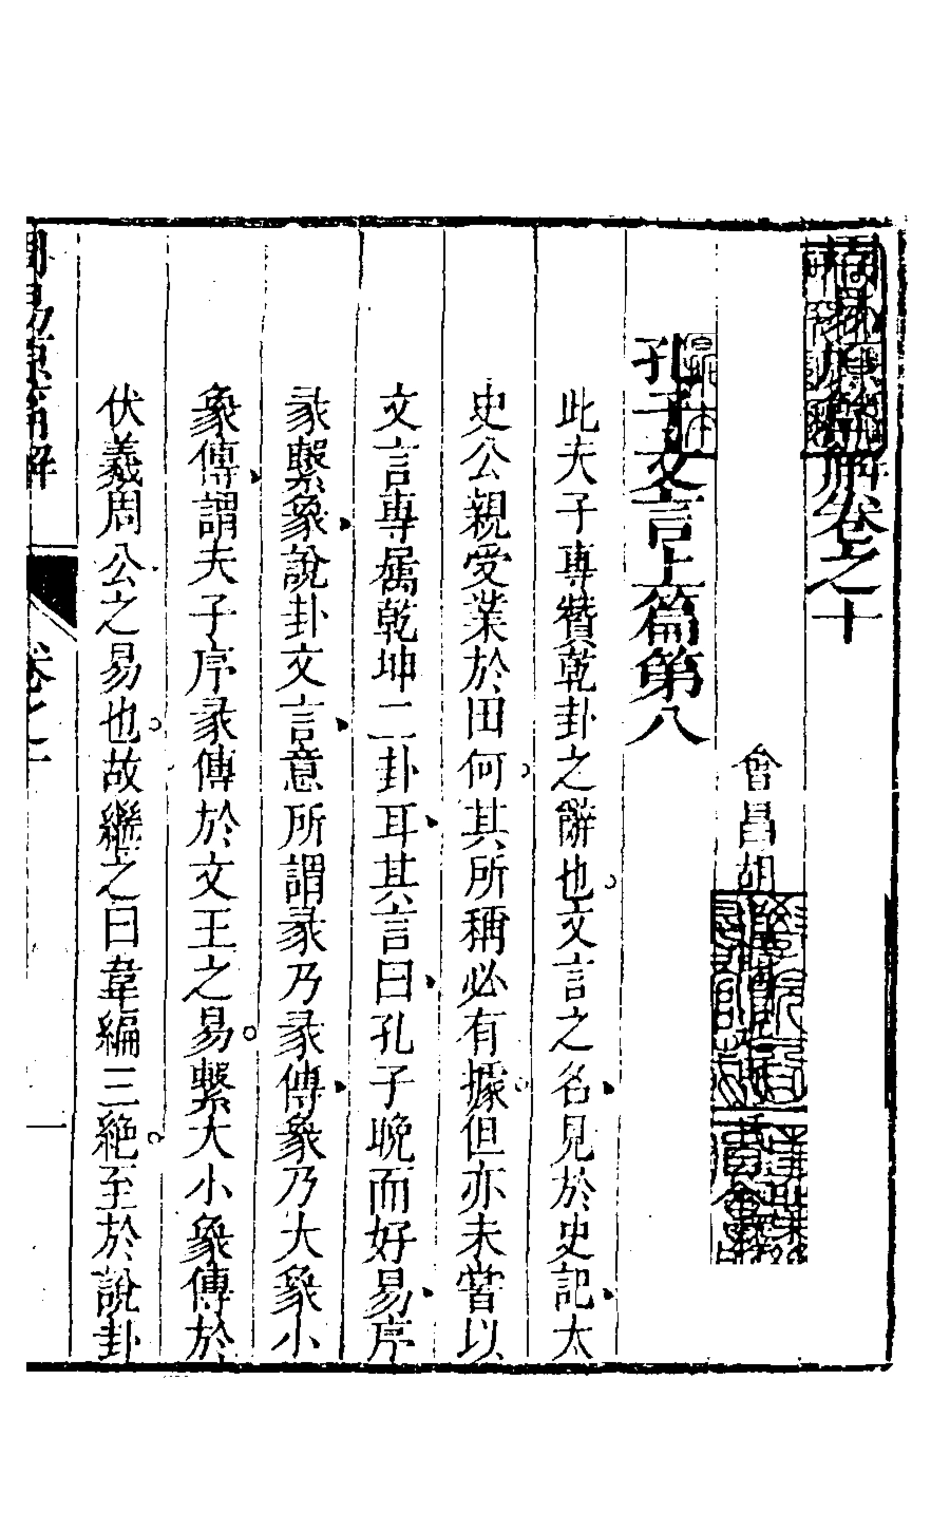 周易原篇解卷之十
會昌胡
孔子文言上篇第八
此夫子專贊乾卦之辭也文言之名見於史記太
史公親受業於田何其所稱必有據但亦未嘗以
文言專属乾坤二卦耳其言曰孔子晚而好易序
彖繫象說卦文言意所謂彖乃彖傳象乃大象小
象傳謂夫子序彖傳於文王之易繫大小象傳於
伏羲周公之易也故繼之曰韋編三絶至於說卦
周易原篇解 卷之十 一